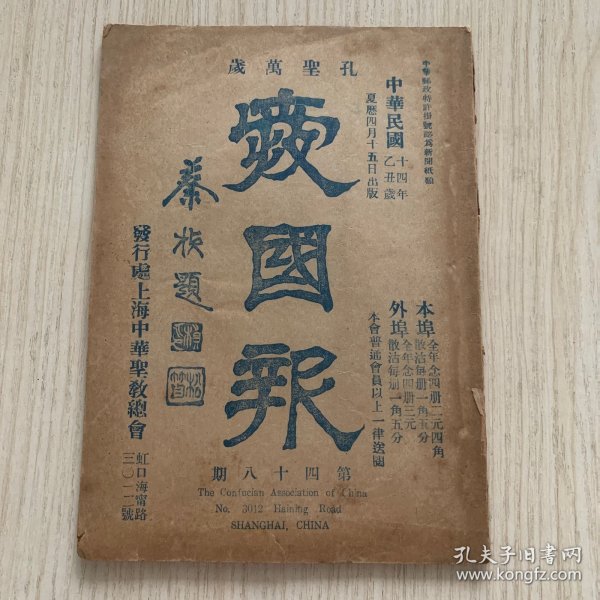 中華郵政特許掛號認為新聞紙類
孔聖萬歲
中華民國十四年乙丑歲
夏曆四月十五日出版
愛國報
秦枚題
本埠全年念四册二元四角
散沽每册一角五分
外埠全年念四册三元
散沽每册一角五分
本會普通會員以上一律送閱
發行處上海中華聖教總會
虹口海甯路
三〇一二號
第四十八期
The Confucian Association of China
No. 3012 Haining Road
SHANGHAI, CHINA
孔夫子旧书网
www.kongfz.com